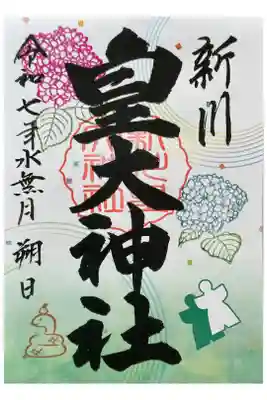 新川
皇大神社
令和七年水無月 朔日